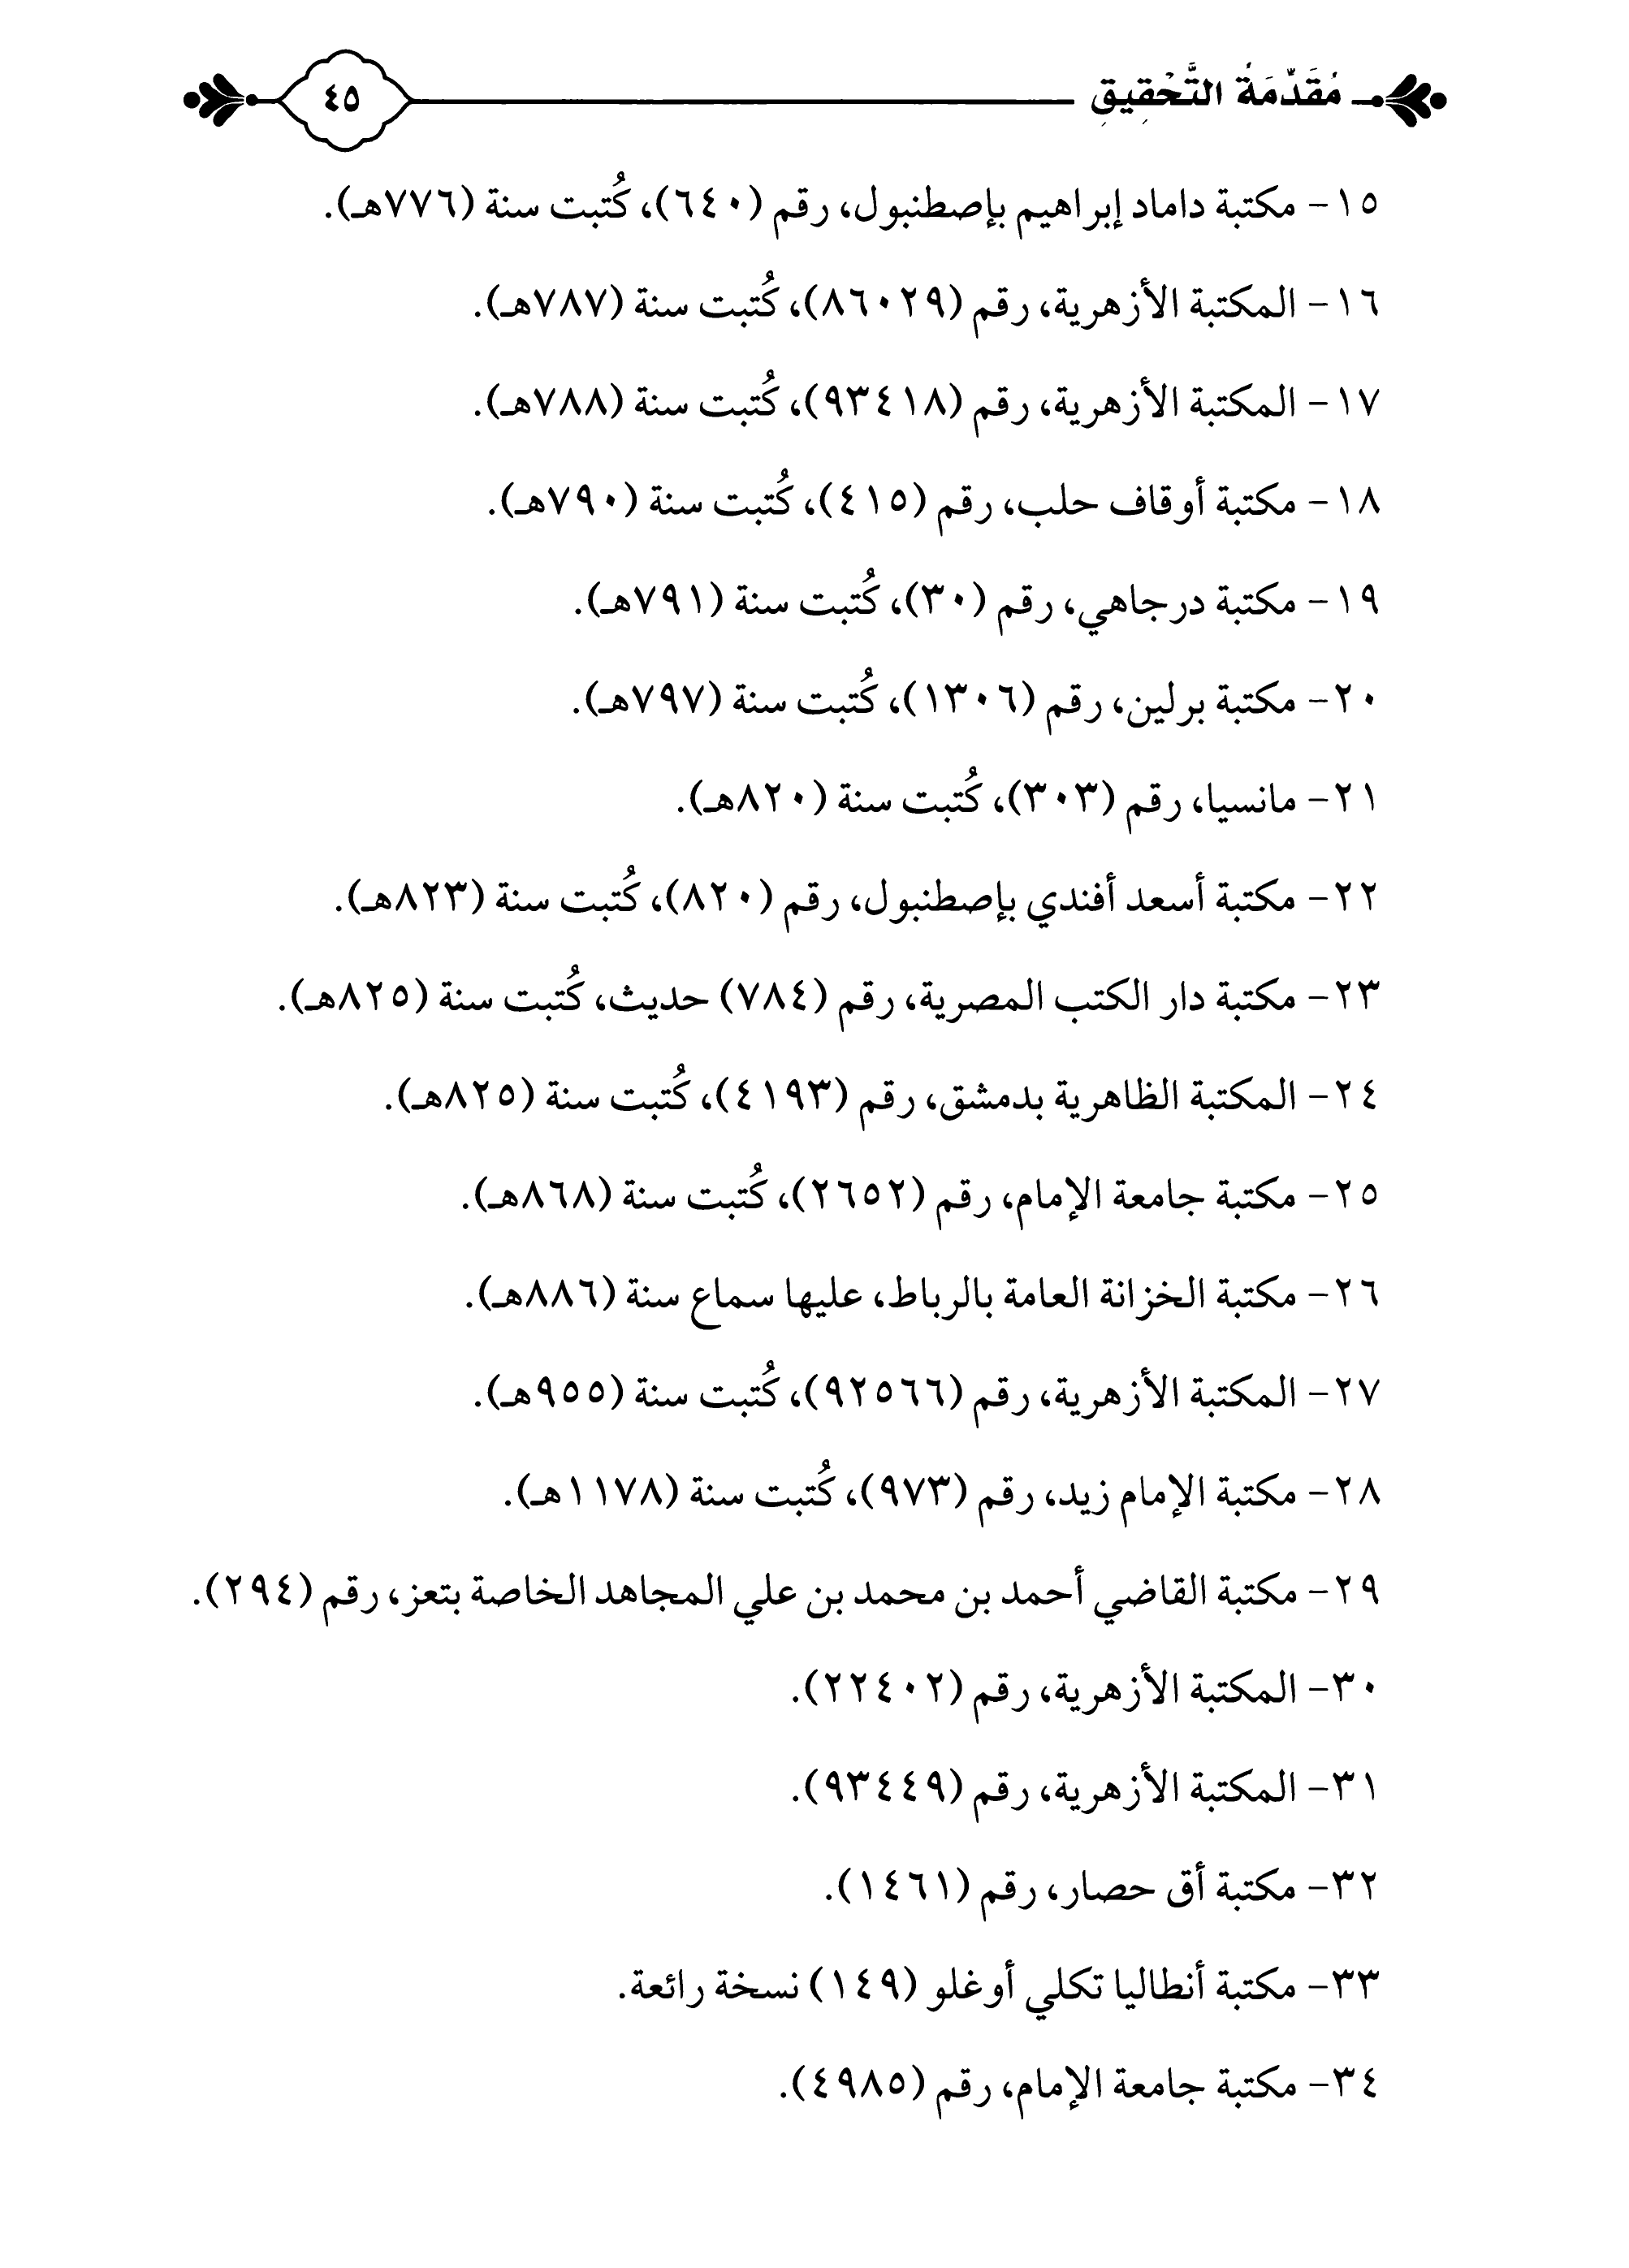 مُقَدِّمَةُ التَّحْقِيقِ
٤٥
١٥- مكتبة داماد إبراهيم بإصطنبول، رقم (٦٤٠)، كُتبت سنة (٧٧٦هـ).
١٦- المكتبة الأزهرية، رقم (٨٦٠٢٩)، كُتبت سنة (٧٨٧هـ).
١٧- المكتبة الأزهرية، رقم (٩٣٤١٨)، كُتبت سنة (٧٨٨هـ).
١٨- مكتبة أوقاف حلب، رقم (٤١٥)، كُتبت سنة (٧٩٠هـ).
١٩- مكتبة درجاهي، رقم (٣٠)، كُتبت سنة (٧٩١هـ).
٢٠- مكتبة برلين، رقم (١٣٠٦)، كُتبت سنة (٧٩٧هـ).
٢١- مانسيا، رقم (٣٠٣)، كُتبت سنة (٨٢٠هـ).
٢٢- مكتبة أسعد أفندي بإصطنبول، رقم (٨٢٠)، كُتبت سنة (٨٢٣هـ).
٢٣- مكتبة دار الكتب المصرية، رقم (٧٨٤) حديث، كُتبت سنة (٨٢٥هـ).
٢٤- المكتبة الظاهرية بدمشق، رقم (٤١٩٣)، كُتبت سنة (٨٢٥هـ).
٢٥- مكتبة جامعة الإمام، رقم (٢٦٥٢)، كُتبت سنة (٨٦٨هـ).
٢٦- مكتبة الخزانة العامة بالرباط، عليها سماع سنة (٨٨٦هـ).
٢٧- المكتبة الأزهرية، رقم (٩٢٥٦٦)، كُتبت سنة (٩٥٥هـ).
٢٨- مكتبة الإمام زيد، رقم (٩٧٣)، كُتبت سنة (١١٧٨هـ).
٢٩- مكتبة القاضي أحمد بن محمد بن علي المجاهد الخاصة بتعز، رقم (٢٩٤).
٣٠- المكتبة الأزهرية، رقم (٢٢٤٠٢).
٣١- المكتبة الأزهرية، رقم (٩٣٤٤٩).
٣٢- مكتبة أق حصار، رقم (١٤٦١).
٣٣- مكتبة أنطاليا تكلي أوغلو (١٤٩) نسخة رائعة.
٣٤- مكتبة جامعة الإمام، رقم (٤٩٨٥).